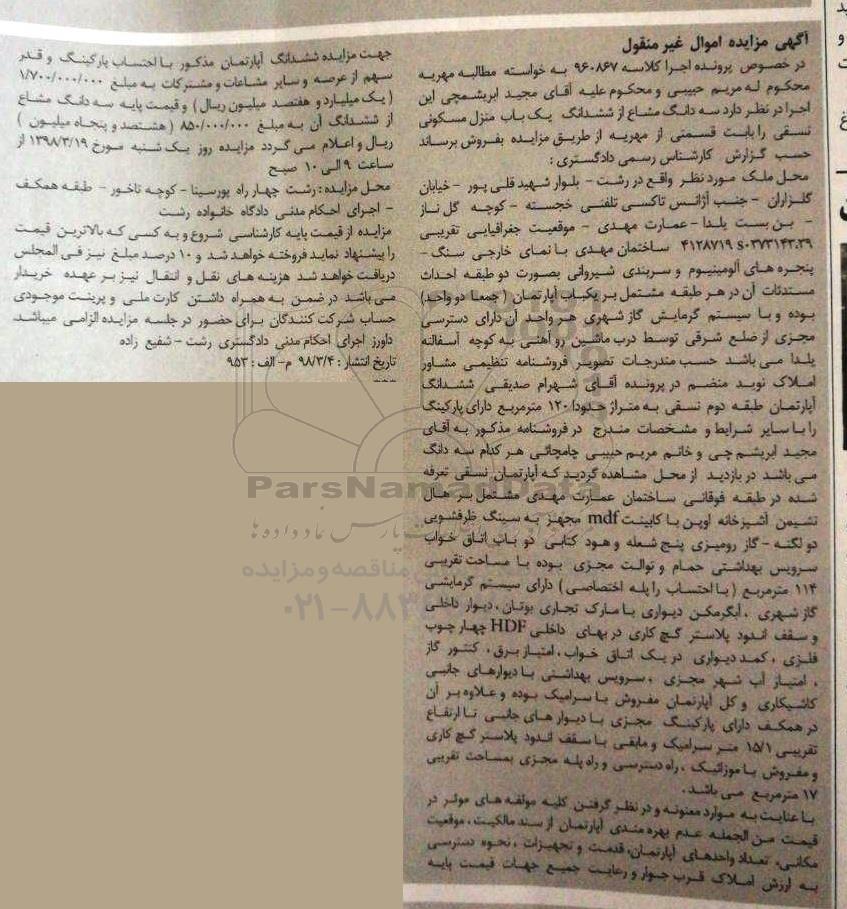 آگهی مزایده اموال غیر منقول
در خصوص پرونده اجرا کلاسه ۹۶۰۸۶۷ به خواسته مطالبه مهریه
محکوم له مریم حبیبی و محکوم علیه آقای مجید ابریشمچی این
اجرا در نظر دارد سه دانگ مشاع از ششدانگ یک باب منزل مسکونی
نسقی را بابت قسمتی از مهریه از طریق مزایده بفروش برساند
حسب گزارش کارشناس رسمی دادگستری :
محل ملک مورد نظر واقع در رشت - بلوار شهید قلی پور - خیابان
گلزاران - جنب آژانس تاکسی تلفنی خجسته - کوچه گل ناز
- بن بست یلدا - عمارت مهدی - موقعیت جغرافیایی تقریبی
۴۱۲۸۷۱۹ S۰۳۷۳۱۴۳.۳۹ ساختمان مهدی با نمای خارجی سنگ -
پنجره های آلومینیوم و سربندی شیروانی بصورت دو طبقه احداث
مستحدثات آن در هر طبقه مشتمل بر یکباب آپارتمان (جمعا دو واحد)
بوده و با سیستم گرمایش گاز شهری هر واحد آن دارای دسترسی
مجزی از ضلع شرقی توسط درب ماشین رو آهنی به کوچه آسفالته
یلدا می باشد حسب مندرجات تصویر فروشنامه تنظیمی مشاور
املاک نوید منضم در پرونده آقای شهرام صدیقی ششدانگ
آپارتمان طبقه دوم نسقی به متراژ حدودا ۱۲۰ مترمربع دارای پارکینگ
را با سایر شرایط و مشخصات مندرج در فروشنامه مذکور به آقای
مجید ابریشم چی و خانم مریم حبیبی چامچائی هر کدام سه دانگ
می باشد در بازدید از محل مشاهده گردید که آپارتمان نسقی تعرفه
شده در طبقه فوقانی ساختمان عمارت مهدی مشتمل بر هال
نشیمن آشپزخانه اوپن با کابینت mdf مجهز به سینگ ظرفشویی
دو لگنه - گاز رومیزی پنج شعله و هود کتابی دو باب اتاق خواب
سرویس بهداشتی حمام و توالت مجزی بوده با مساحت تقریبی
۱۱۴ مترمربع (با احتساب را پله اختصاصی) دارای سیستم گرمایشی
گاز شهری ، آبگرمکن دیواری با مارک تجاری بوتان ، دیوار داخلی
و سقف اندود پلاستر گچ کاری در بهای داخلی HDF چهار چوب
فلزی ، کمد دیواری در یک اتاق خواب ، امتیاز برق ، کنتور گاز
، امتیاز آب شهر مجزی ، سرویس بهداشتی با دیوارهای جانبی
کاشیکاری و کل آپارتمان مفروش با سرامیک بوده و علاوه بر آن
در همکف دارای پارکینگ مجزی با دیوار های جانبی تا ارتفاع
تقریبی ۱۵/۱ متر سرامیک و مابقی با سقف اندود پلاستر گچ کاری
و مفروش با موزائیک ، راه دسترسی و راه پله مجزی بمساحت تقریبی
۱۷ مترمربع می باشد .
با عنایت به موارد معنونه و در نظر گرفتن کلیه مولفه های موثر در
قیمت من الجمله عدم بهره مندی آپارتمان از سند مالکیت ، موقعیت
مکانی ، تعداد واحدهای آپارتمان، قدمت و تجهیزات ، نحوه دسترسی
به ارزش املاک قرب جوار و رعایت جمیع جهات قیمت پایه
جهت مزایده ششدانگ آپارتمان مذکور با احتساب پارکینگ و قدر
سهم از عرصه و سایر مشاعات و مشترکات به مبلغ ۱/۷۰۰/۰۰۰/۰۰۰
( یک میلیارد و هفتصد میلیون ریال ) و قیمت پایه سه دانگ مشاع
از ششدانگ آن به مبلغ ۸۵۰/۰۰۰/۰۰۰ ( هشتصد و پنجاه میلیون )
ریال و اعلام می گردد مزایده روز یک شنبه مورخ ۱۳۹۸/۳/۱۹ از
ساعت ۹ الی ۱۰ صبح
محل مزایده : رشت چهار راه پورسینا - کوچه تاخور - طبقه همکف
- اجرای احکام مدنی دادگاه خانواده رشت
مزایده از قیمت پایه کارشناسی شروع و به کسی که بالاترین قیمت
را پیشنهاد نماید فروخته خواهد شد و ۱۰ درصد مبلغ نیز فی المجلس
دریافت خواهد شد هزینه های نقل و انتقال نیز بر عهده خریدار
می باشد در ضمن به همراه داشتن کارت ملی و پرینت موجودی
حساب شرکت کنندگان برای حضور در جلسه مزایده الزامی میباشد.
داورز اجرای احکام مدنی دادگستری رشت - شفیع زاده
تاریخ انتشار : ۹۸/۳/۴ م - الف : ۹۵۳
ParsNamadData
پارس نماد داده ها
مناقصه و مزایده